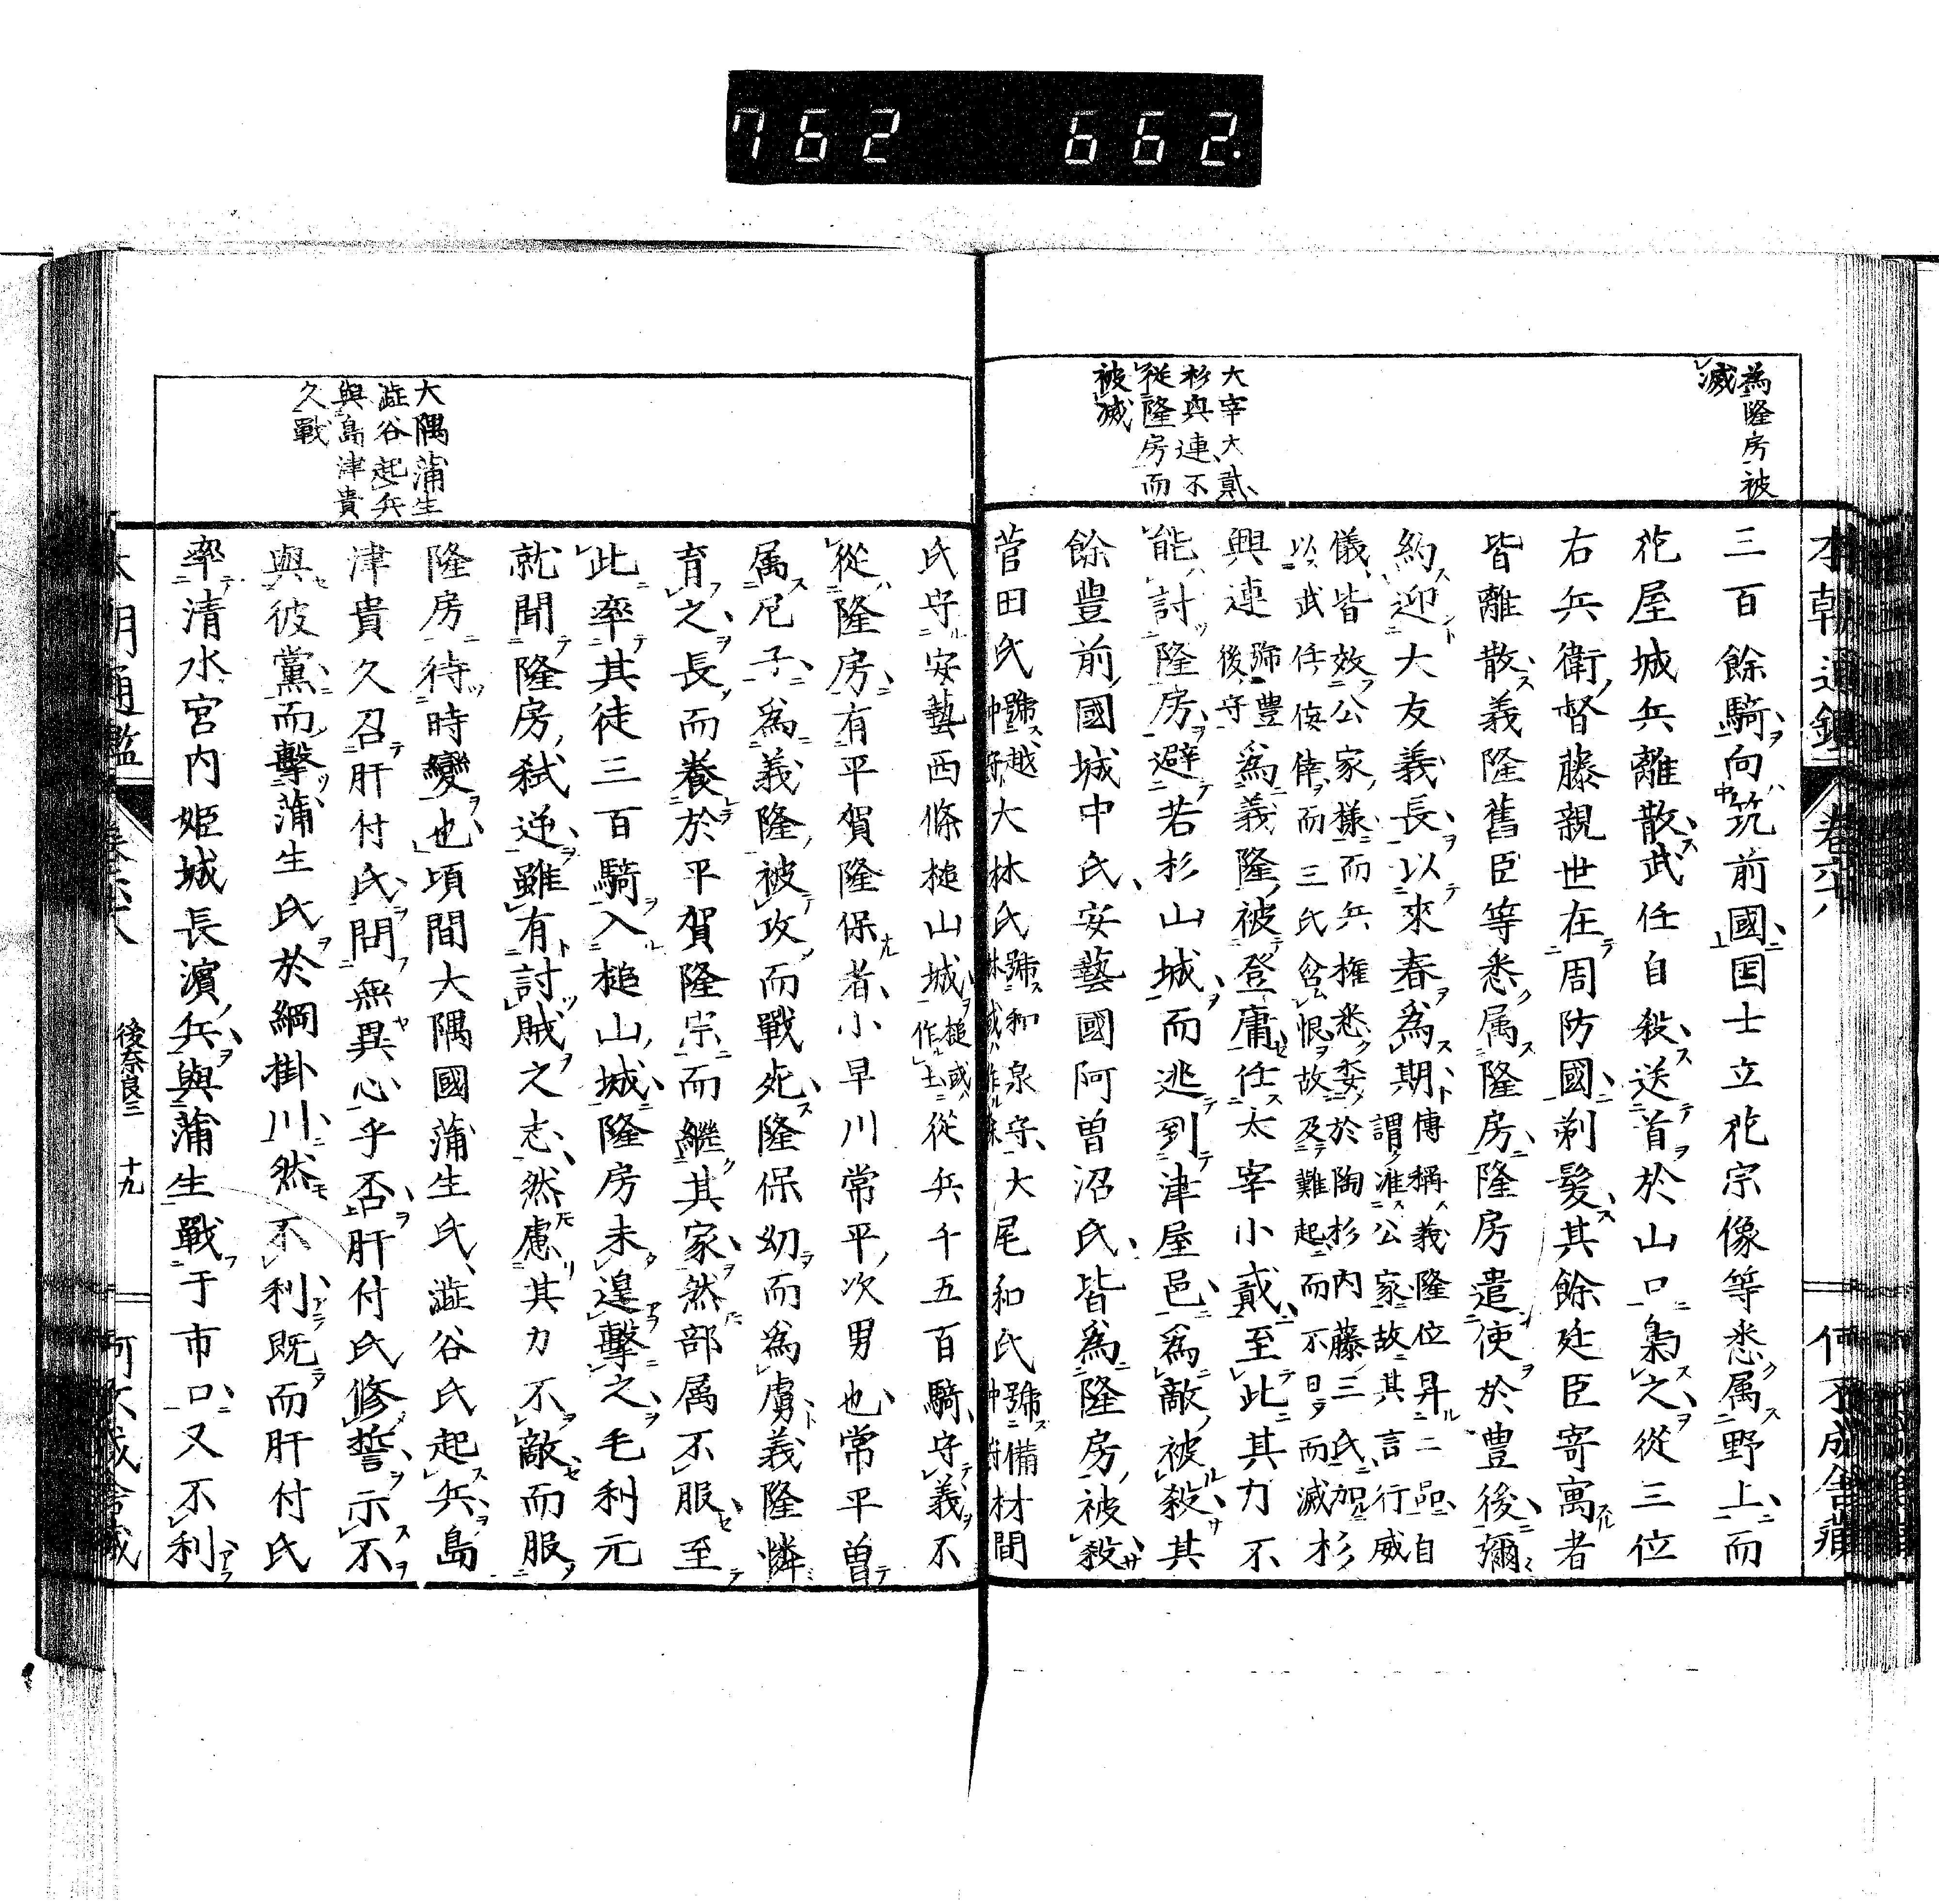 762 662.
本朝通鑑 卷六十八 何不成舍藏
為隆房被
滅
三百餘騎向筑前國国士立花宗像等悉属野上而
花屋城兵離散武任自殺送首於山口梟之從三位
右兵衛督藤親世在周防國剃髮其餘廷臣寄寓者
皆離散義隆舊臣等悉属隆房隆房遣使於豊後彌
約迎大友義長以來春為期
傳稱義隆位昇二品自
謂准公家故其言行威
儀皆效公家樣而兵權悉委於陶杉內藤三氏加杉
以武任侫倖而三氏忿恨故及難起而不日而滅
大宰大貳
杉興連不
從隆房而
被滅
興連
號豊
後守
為義隆被登庸任太宰小貳至此其力不
能討隆房避若杉山城而逃到津屋邑為敵被殺其
餘豊前國城中氏安藝國阿曽沼氏皆為隆房被殺
菅田氏
號越
大林氏
號和泉守
大尾和氏
號備
材間
氏守安藝西條槌山城
槌或
作土
從兵千五百騎守義不
從隆房有平賀隆保者小早川常平次男也常平曽
属尼子為義隆被攻而戰死隆保幼而為虜義隆憐
育之長而養於平賀隆宗而繼其家然部属不服至
此率其徒三百騎入槌山城隆房未遑擊之毛利元
就聞隆房弒逆雖有討賊之志然慮其力不敵而服
隆房待時變也頃間大隅國蒲生氏澁谷氏起兵島
大隅蒲生
澁谷起兵
與島津貴
久戰
津貴久召肝付氏問無異心乎否肝付氏修誓示不
與彼黨而擊蒲生氏於綱掛川然不利既而肝付氏
率清水宮內姬城長濱兵與蒲生戰于市口又不利
本朝通鑑 卷六十八 後奈良三 十九 何不成舍藏